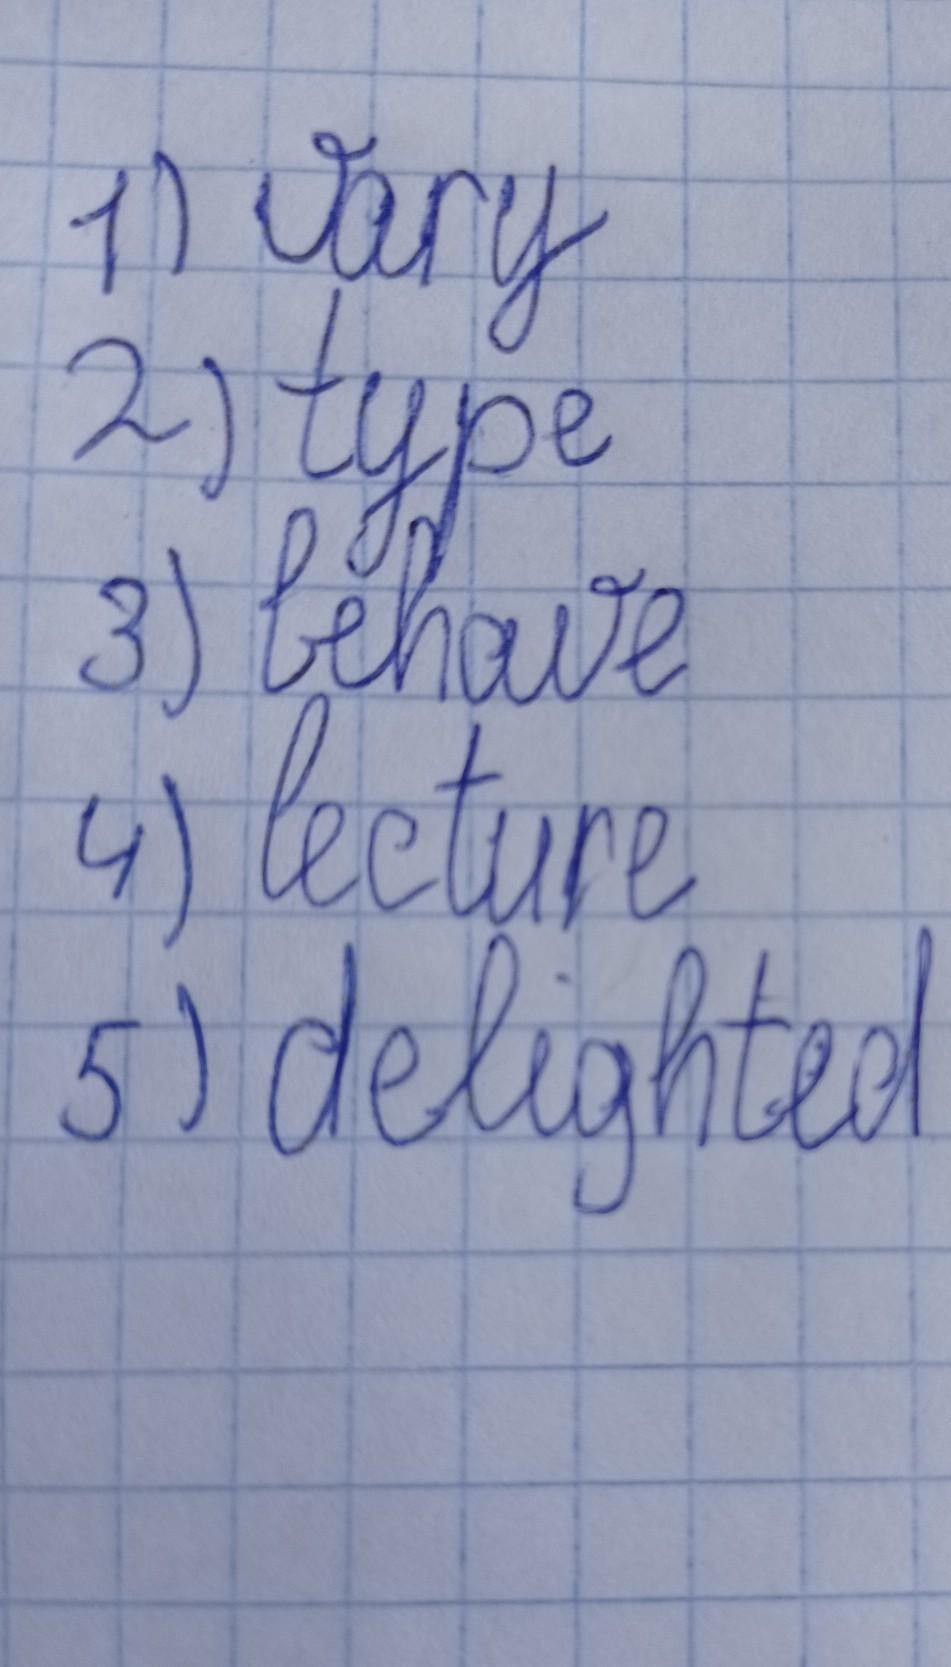 1) vary
2) type
3) behave
4) lecture
5) delighted